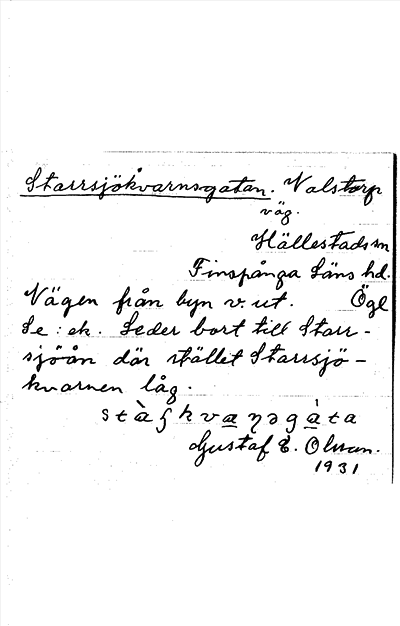 Starrsjökvarnsgatan. Valstorp
väg.
Hällestads sn
Finspånga läns hd.
Vägen från byn v. ut. Ögl
Se: ek. Leder bort till Starr-
sjöån där stället Starrsjö-
kvarnen låg.
Gustaf E. Olsson.
1931